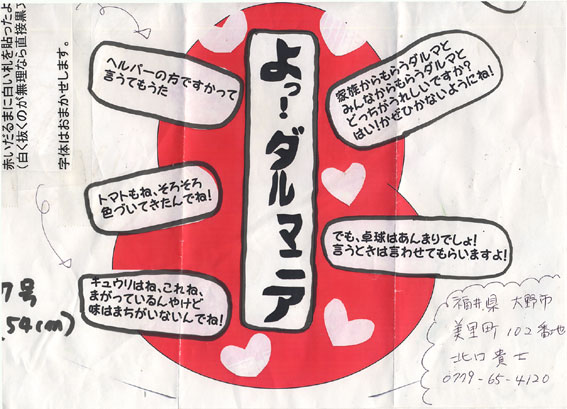 赤いだるまに白い札を貼ったよ
(白く抜くのが無理なら直接黒
字体はおまかせします。
よっ!ダルマニア
ヘルパーの方ですかって
言うてもうた
家族からもらうダルマと
みんなからもらうダルマと
どっちがうれしいですか?
はい!かぜひかないようにね!
トマトもね、そろそろ
色づいてきたんでね!
でも、卓球はあんまりでしょ!
言うときは言わせてもらいますよ!
キュウリはね、これね、
まがっているんやけど
味はまちがいないんでね!
号
54(cm)
福井県 大野市
美里町 102番地
北口貴士
0779-65-4120